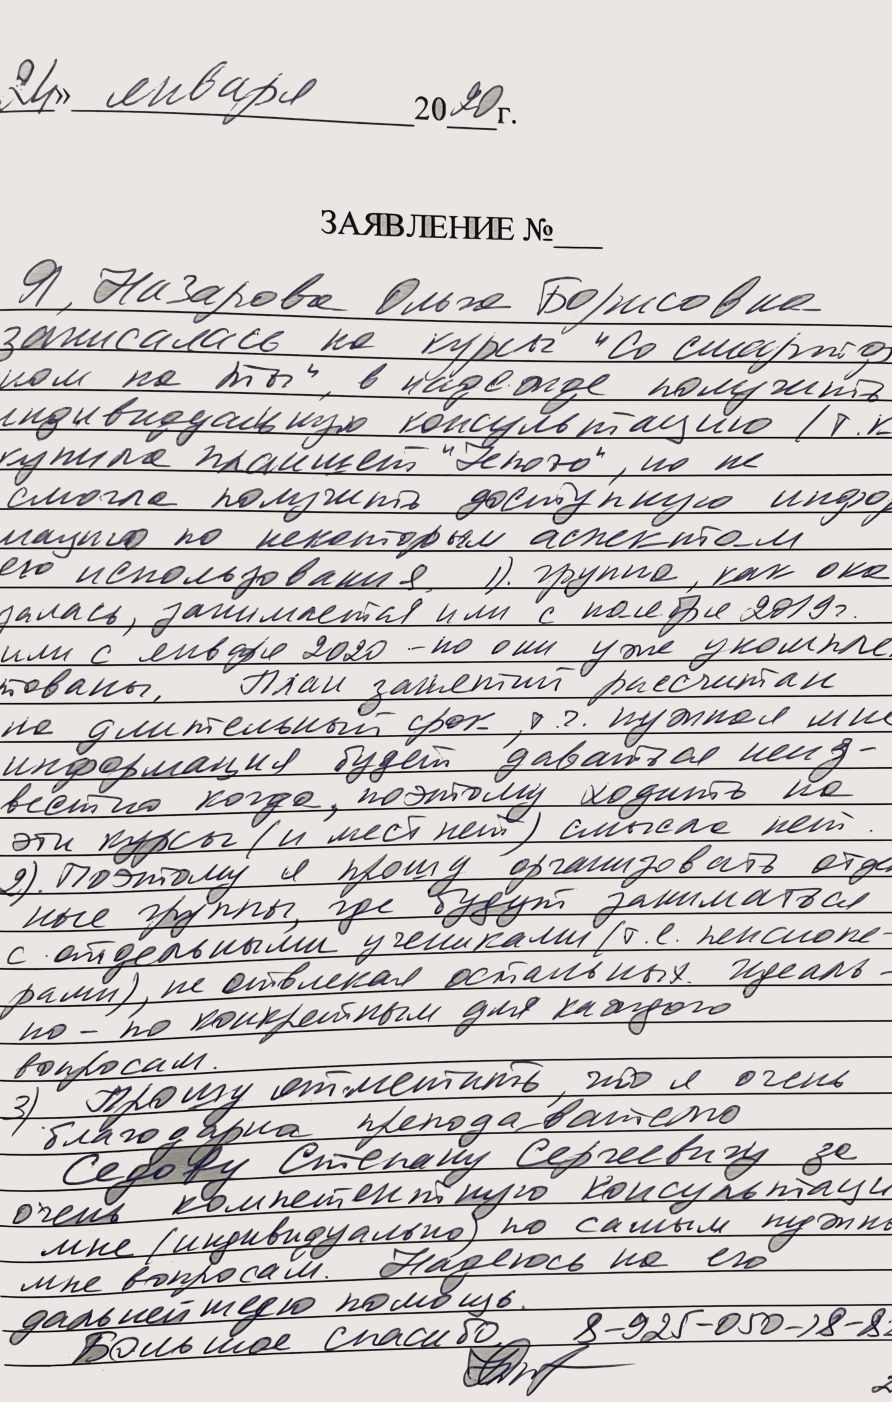 24» января 2020 г.
ЗАЯВЛЕНИЕ №
Я, Назарова Ольга Борисовна
записалась на курсы "Со смартфо
ном на ты", в надежде получить
индивидуальную консультацию (т.к
купила планшет "Леново", но не
смогла получить доступную инфор
мацию по некоторым аспектам
его использования. 1). группа, как ока
залась, занимается или с ноября 2019г.
или с января 2020 - но они уже укомплек
тованы. План занятий рассчитан
на длительный срок, т.г. нужная мне
информация будет даваться неиз-
вестно когда, поэтому ходить на
эти курсы (и мест нет) смысла нет.
2). Поэтому я прошу организовать отдель
ные группы, где будут заниматься
с отдельными учениками (т.е. пенсионе-
рами), не отвлекая остальных. Идеаль-
но - по конкретным для каждого
вопросам.
3) Прошу отметить, что я очень
благодарна преподавателю
Седову Степану Сергеевичу за
очень компетентную консультаци
мне (индивидуально) по самым нужны
мне вопросам. Надеюсь на его
дальнейшую помощь.
Большое спасибо. 8-925-050-78-82
2